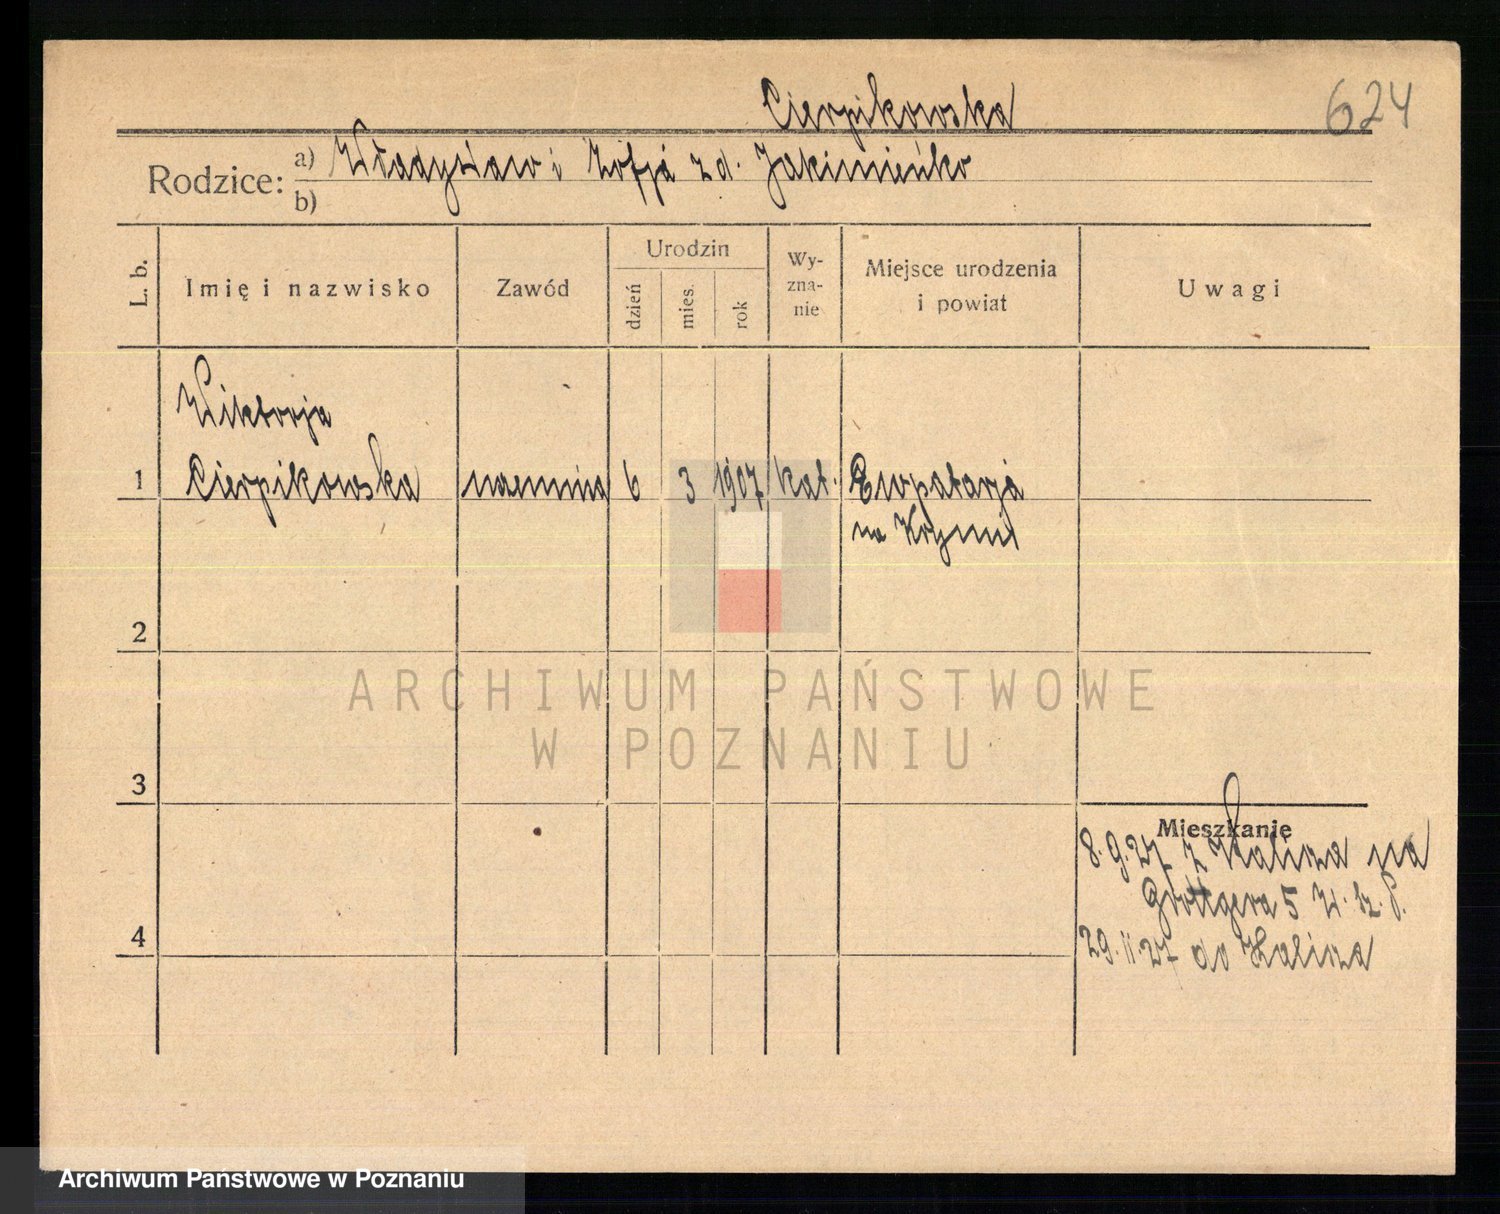 Cierpikowska
624
Rodzice: a) Władysław i Zofja zd. Jakimieńko
b)
L. b.
Imię i nazwisko
Zawód
Urodzin
dzień
mies.
rok
Wy-
zna-
nie
Miejsce urodzenia
i powiat
Uwagi
Wiktorja
1 Cierpikowska uczennica 6 3 1907 kat. Ewpatorja
na Krymie
2
3
4
Mieszkanie
8.9.27 z Kalisza na
Grottgera 5
29.11.27 do Kalisza
ARCHIWUM PAŃSTWOWE
W POZNANIU
Archiwum Państwowe w Poznaniu